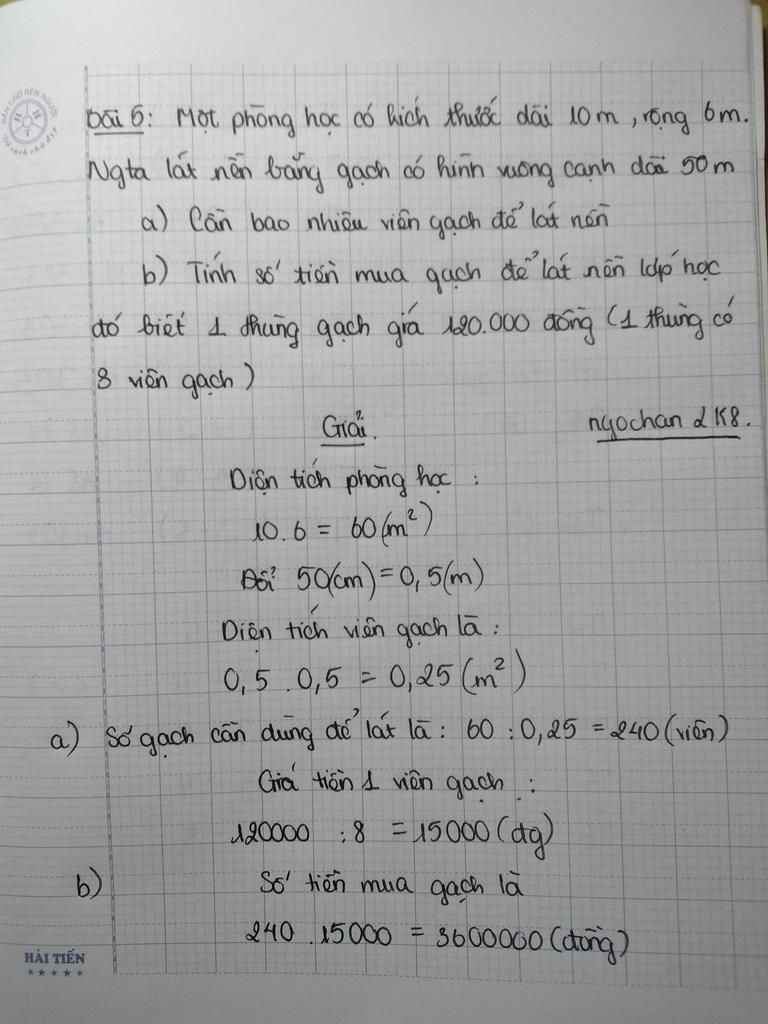 bài 6: Một phòng học có kích thước dài 10m, rộng 6m.
Ngta lát nền bằng gạch có hình vuông cạnh dài 50m
a) Cần bao nhiêu viên gạch để lát nền
b) Tính số tiền mua gạch để lát nền lớp học
đó biết 1 thùng gạch giá 120.000 đồng (1 thùng có
8 viên gạch)
Giải.
ngochan 2k8.
Diện tích phòng học :
10.6 = 60(m²)
Đổi 50(cm)=0,5(m)
Diện tích viên gạch là :
0,5 . 0,5 = 0,25 (m²)
a) Số gạch cần dùng để lát là : 60 : 0,25 = 240 (viên)
Giá tiền 1 viên gạch :
120000 : 8 = 15000 (đg)
b) Số tiền mua gạch là
240 . 15000 = 3600000 (đồng)
HẢI TIẾN
★★★★★